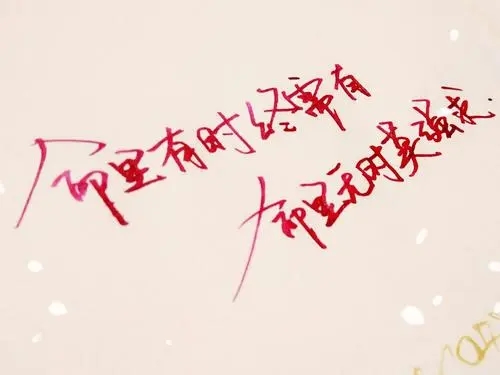 命里有时终常有
命里无时莫强求